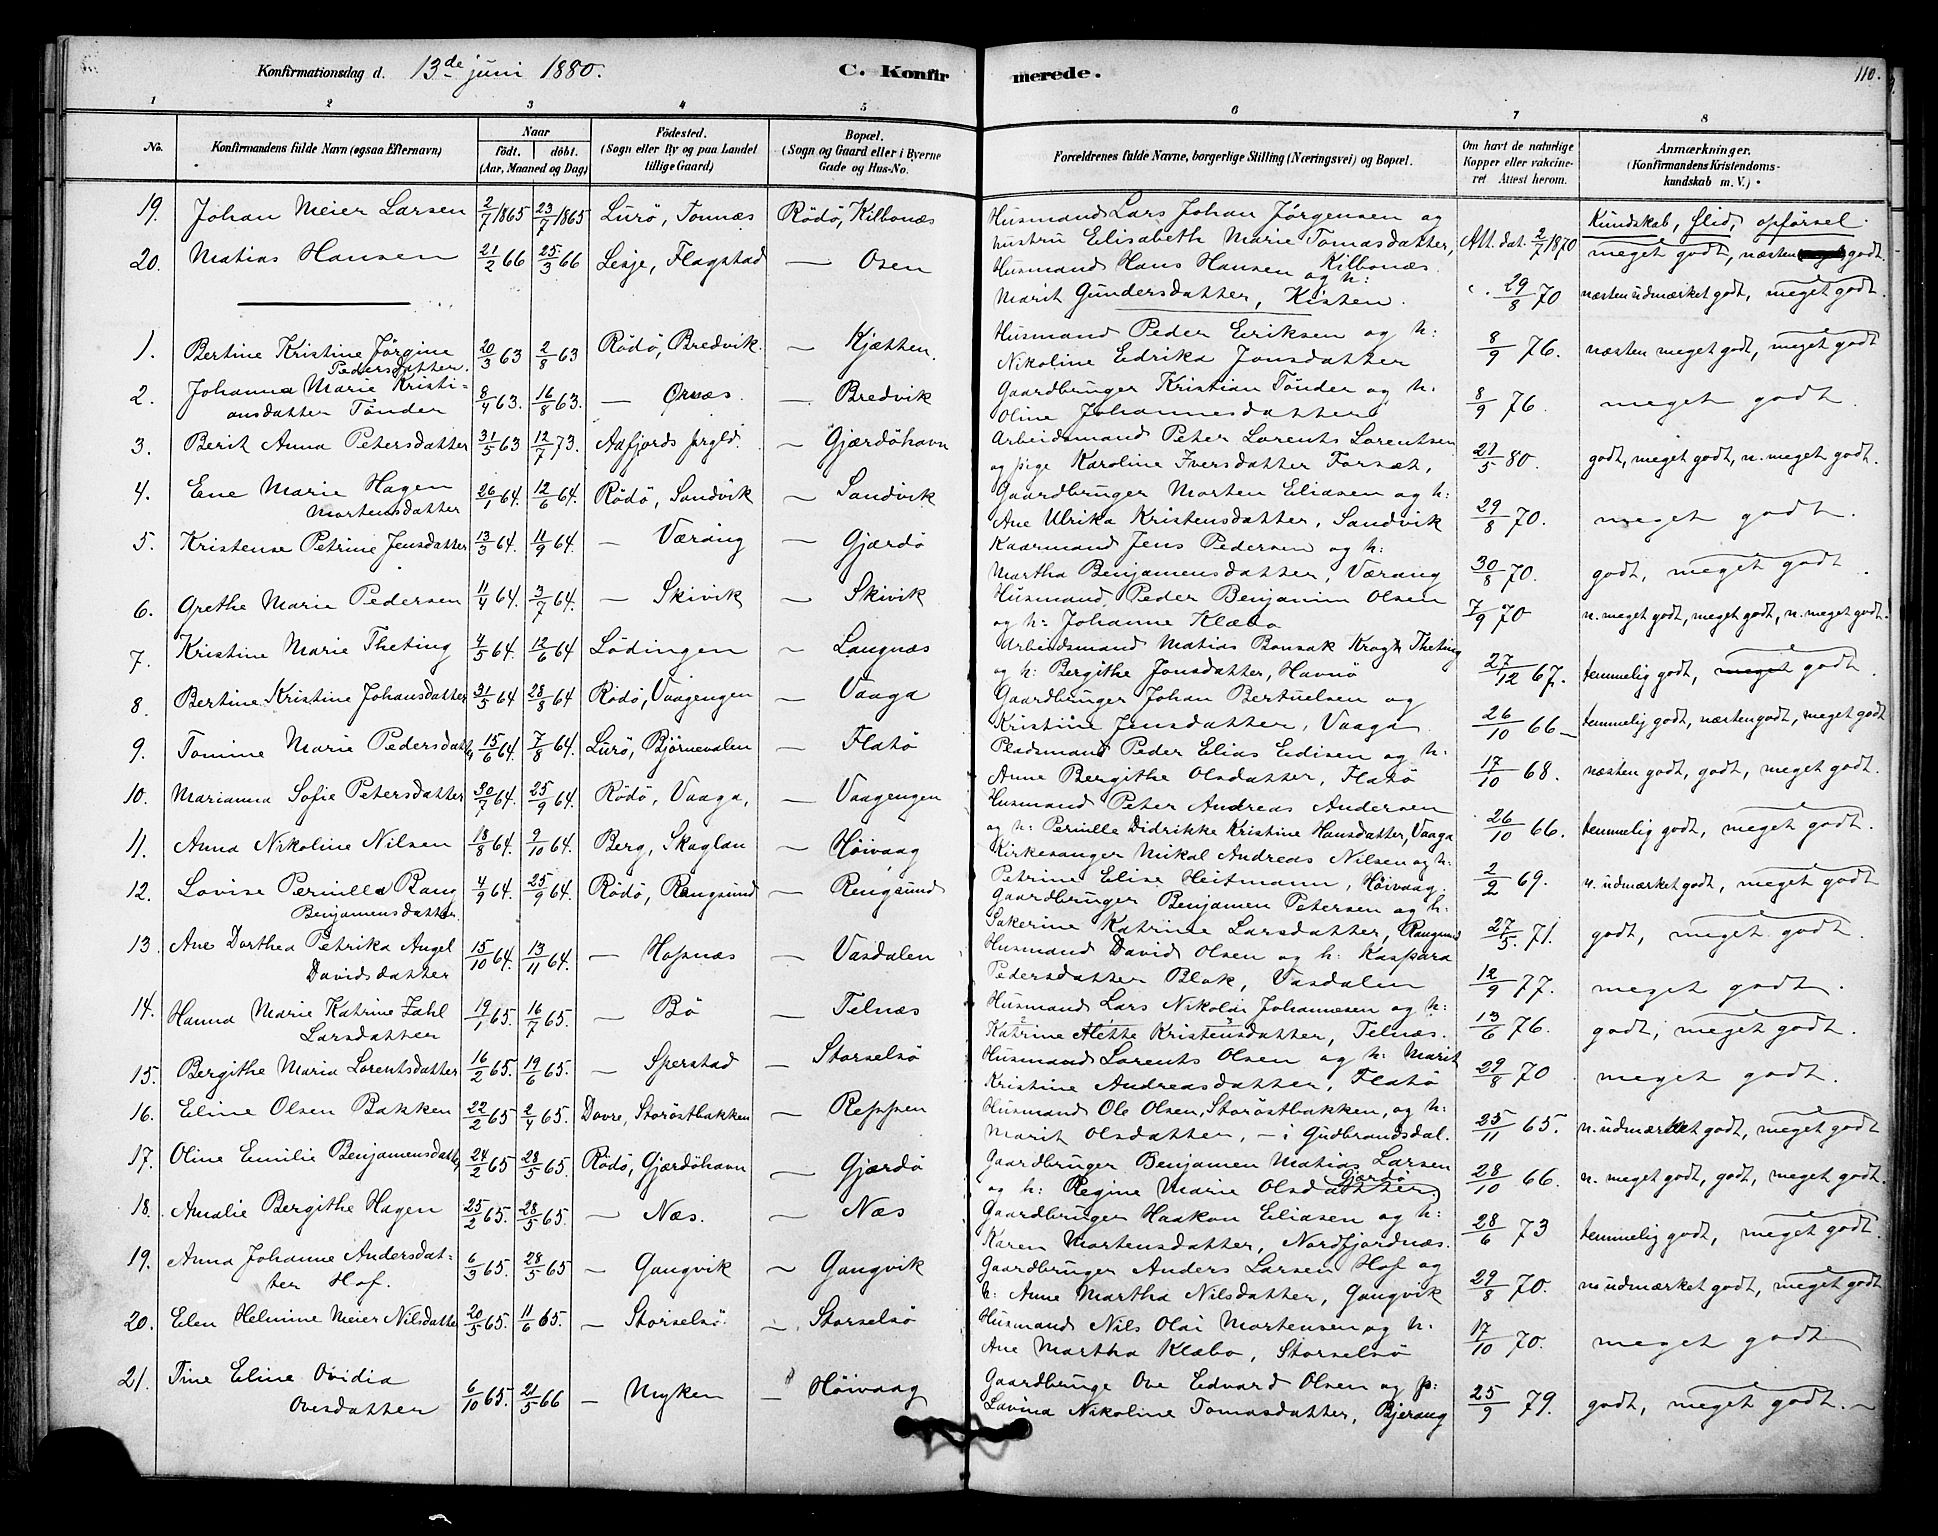 Konfirmationsdag d. 13de juni 1880. C. Konfirmerede. 110.
1 2 3 4 5 6 7 8
No. Konfirmandens fulde Navn (ogsaa Efternavn) Naar født. døbt. (Aar, Maaned og Dag) Fødested. (Sogn eller By og paa Landet tillige Gaard) Bopæl. (Sogn og Gaard eller i Byerne Gade og Hus-No. Forældrenes fulde Navne, borgerlige Stilling (Næringsvei) og Bopæl. Om havt de naturlige Kopper eller vakcineret Attest herom. Anmærkninger. (Konfirmandens Kristendomskundskab m. V.)
19. Johan Meier Larsen 2/7 1865 23/7 1865 Lurö, Tonnæs Rödö, Kilbonæs Husmand Lars Johan Jörgensen og
hustru Elisabeth Marie Tomasdatter, Kilbonæs. Att. dat. 2/7 1870 Kundskab, flid, opförsel. meget godt, næsten godt.
20. Matias Hansen 21/2 66 25/3 66 Lesje, Flagstad — Osen Husmand Hans Hansen og h:
Marit Gundersdatter, Kisten. 29/8 70 næsten udmærket godt, meget godt.
1. Bertine Kristine Jörgine Pedersdatter. 20/3 63 2/8 63 Rödö, Bredvik. — Kjætten. Husmand Peder Eriksen og h:
Nikoline Edrika Jonsdatter 8/9 76. næsten meget godt, meget godt
2. Johanna Marie Kristiansdatter Tönder 8/4 63. 16/8 63. — Ørnæs. — Bredvik Gaardbruger Kristian Tönder og h:
Oline Johannesdatter 8/9 76. meget godt.
3. Berit Anna Petersdatter 31/5 63 12/7 73. Aafjords prgld. — Gjærdöhavn Arbeidsmand Peter Lorents Lorentsen
og pige Karoline Iversdatter Forsæt, 21/5 80. godt, meget godt, n. meget godt.
4. Ene Marie Hagen Mortensdatter 26/1 64. 12/6 64. Rödö, Sandvik — Sandvik Gaardbruger Morten Eliasen og h:
Ane Ulrika Kristensdatter, Sandvik 29/8 70. meget godt.
5. Kristense Petrine Jensdatter 13/3 64. 11/9 64. — Værang — Gjærdö Kaarmand Jens Pedersen og h:
Martha Benjamensdatter, Værang 30/8 70. godt, meget godt.
6. Grethe Marie Pedersen 11/4 64. 3/7 64. — Skivik — Skivik Husmand Peder Benjamin Olsen
og h: Johanne Klæbo 7/9 70 n. meget godt, meget godt, n. meget godt.
7. Kristine Marie Theting 4/5 64. 12/6 64 Lödingen — Langnæs Arbeidsmand Matias Bonsak Krogh Theting
og h: Bergithe Jonsdatter, Havnö 27/12 67. temmelig godt, meget godt.
8. Bertine Kristine Johansdatter 31/5 64 28/8 64 Rödö, Vaagengen — Vaaga Gaardbruger Johan Bertuelsen og
Kristine Jensdatter, Vaaga 26/10 66 — temmelig godt, næsten godt, meget godt
9. Tomine Marie Pedersdatter 15/6 64. 7/8 64. Lurö, Björnevalen — Flatö Pladsmand Peder Elias Edisen og h:
Anne Bergithe Olsdatter, Flatö 17/10 68. næsten godt, godt, meget godt.
10. Marianna Sofie Petersdatter 30/7 64. 25/9 64. Rödö, Vaaga, — Vaagengen Husmand Peter Andreas Andersen
og h: Pernille Didrikke Kristine Hansdatter, Vaaga 26/10 66. temmelig godt, meget godt.
11. Anna Nikoline Nilsen 18/8 64. 2/10 64. Berg, Skaglan — Höivaag Kirkesanger Mikal Andreas Nilsen og h:
Petrine Elise Heitmann, Höivaag. 2/2 69. n. udmærket godt, meget godt
12. Lovise Pernille Rang Benjamensdatter. 4/9 64. 25/9 64. Rödö, Rangsund — Rengsund Gaardbruger Benjamen Petersen og h:
Sakerine Katrine Larsdatter, Rangsund 27/5. 71. godt, meget godt.
13. Ane Dorthea Petrika Angel Davidsdatter 15/10 64. 13/11 64. — Hopnæs — Vasdalen Husmand David Olsen og h: Kaspara
Pedersdatter Blok, Vasdalen 12/9 77. meget godt.
14. Hanna Marie Katrine Zahl Larsdatter 19/1 65. 16/7 65. — Bö — Telnæs Husmand Lars Nikolai Johannesen og h:
Katrine Alette Kristensdatter, Telnæs. 13/6 76. godt, meget godt.
15. Bergithe Maria Lorentsdatter 16/2 65. 19/6 65. — Sperstad — Storselsö Husmand Lorents Olsen og h: Marit
Kristine Andreasdatter, Flatö 29/8 70 meget godt.
16. Eline Olsen Bakken 22/2 65 2/4 65. Dovre, Storöstbakken — Reppen Husmand Ole Olsen, Storöstbakken, og h:
Marit Olsdatter, — i Gudbrandsdal. 25/11 65. n. udmærket godt, meget godt
17. Oline Emilie Benjamensdatter 24/2 65 28/5 65. Rödö, Gjærdöhavn — Gjærdö Gaardbruger Benjamen Matias Larsen
og h: Regine Marie Olsdatter, Gjærdö 28/10 66. n. meget godt, godt, meget godt.
18. Amalie Bergithe Hagen 25/2 65. 28/5 65. — Næs. — Næs Gaardbruger Haakon Eliasen og h:
Karen Mortensdatter, Nordfjordnæs. 28/6 73 temmelig godt, meget godt.
19. Anna Johanne Andersdatter Hof. 6/3 65. 28/5 65 — Gangvik — Gangvik Gaardbruger Anders Larsen Hof og
h: Anne Martha Nilsdatter, Gangvik 29/8 70. n. udmærket godt, meget godt
20. Elen Helmine Meier Nilsdatter 20/5 65. 11/6 65. — Storselsö — Storselsö Husmand Nils Olai Mortensen og h:
Ane Martha Klæbo, Storselsö 17/10 70. meget godt
21. Tine Eline Ovidia Ovesdatter 6/10 65. 21/5 66 — Myken — Höivaag Gaardbruge Ove Edvard Olsen og p:
Lavina Nikoline Tomasdatter, Bjerang 25/9 79. godt, meget godt. —